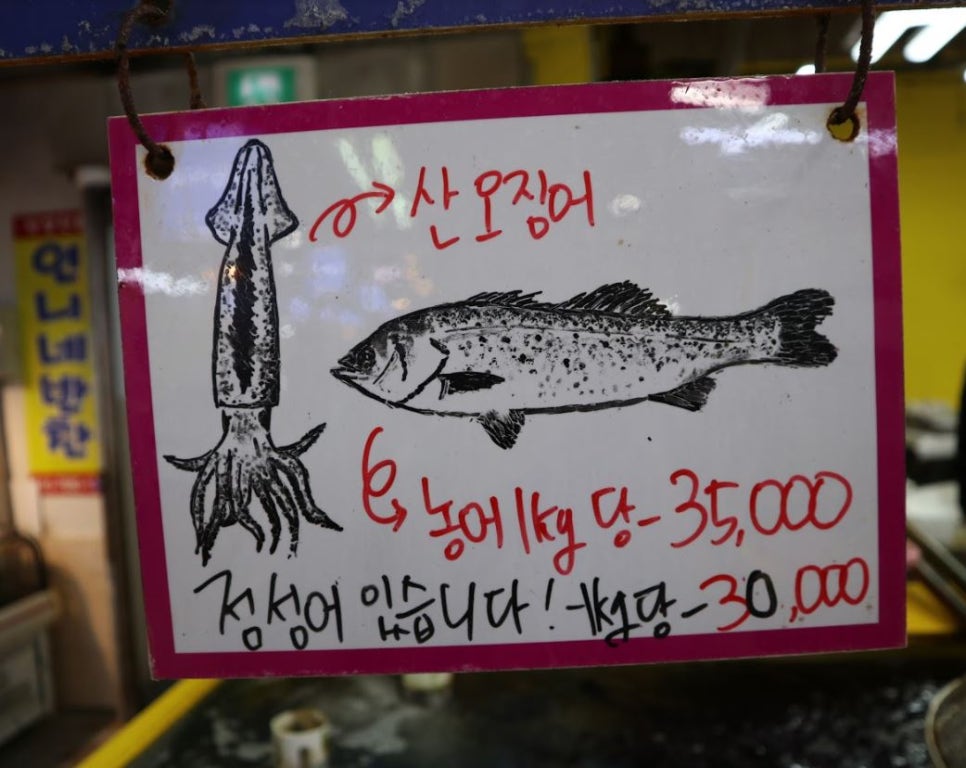 산 오징어
농어 1kg 당 - 35,000
점성어 있습니다! 1kg당 - 30,000
언니네반찬